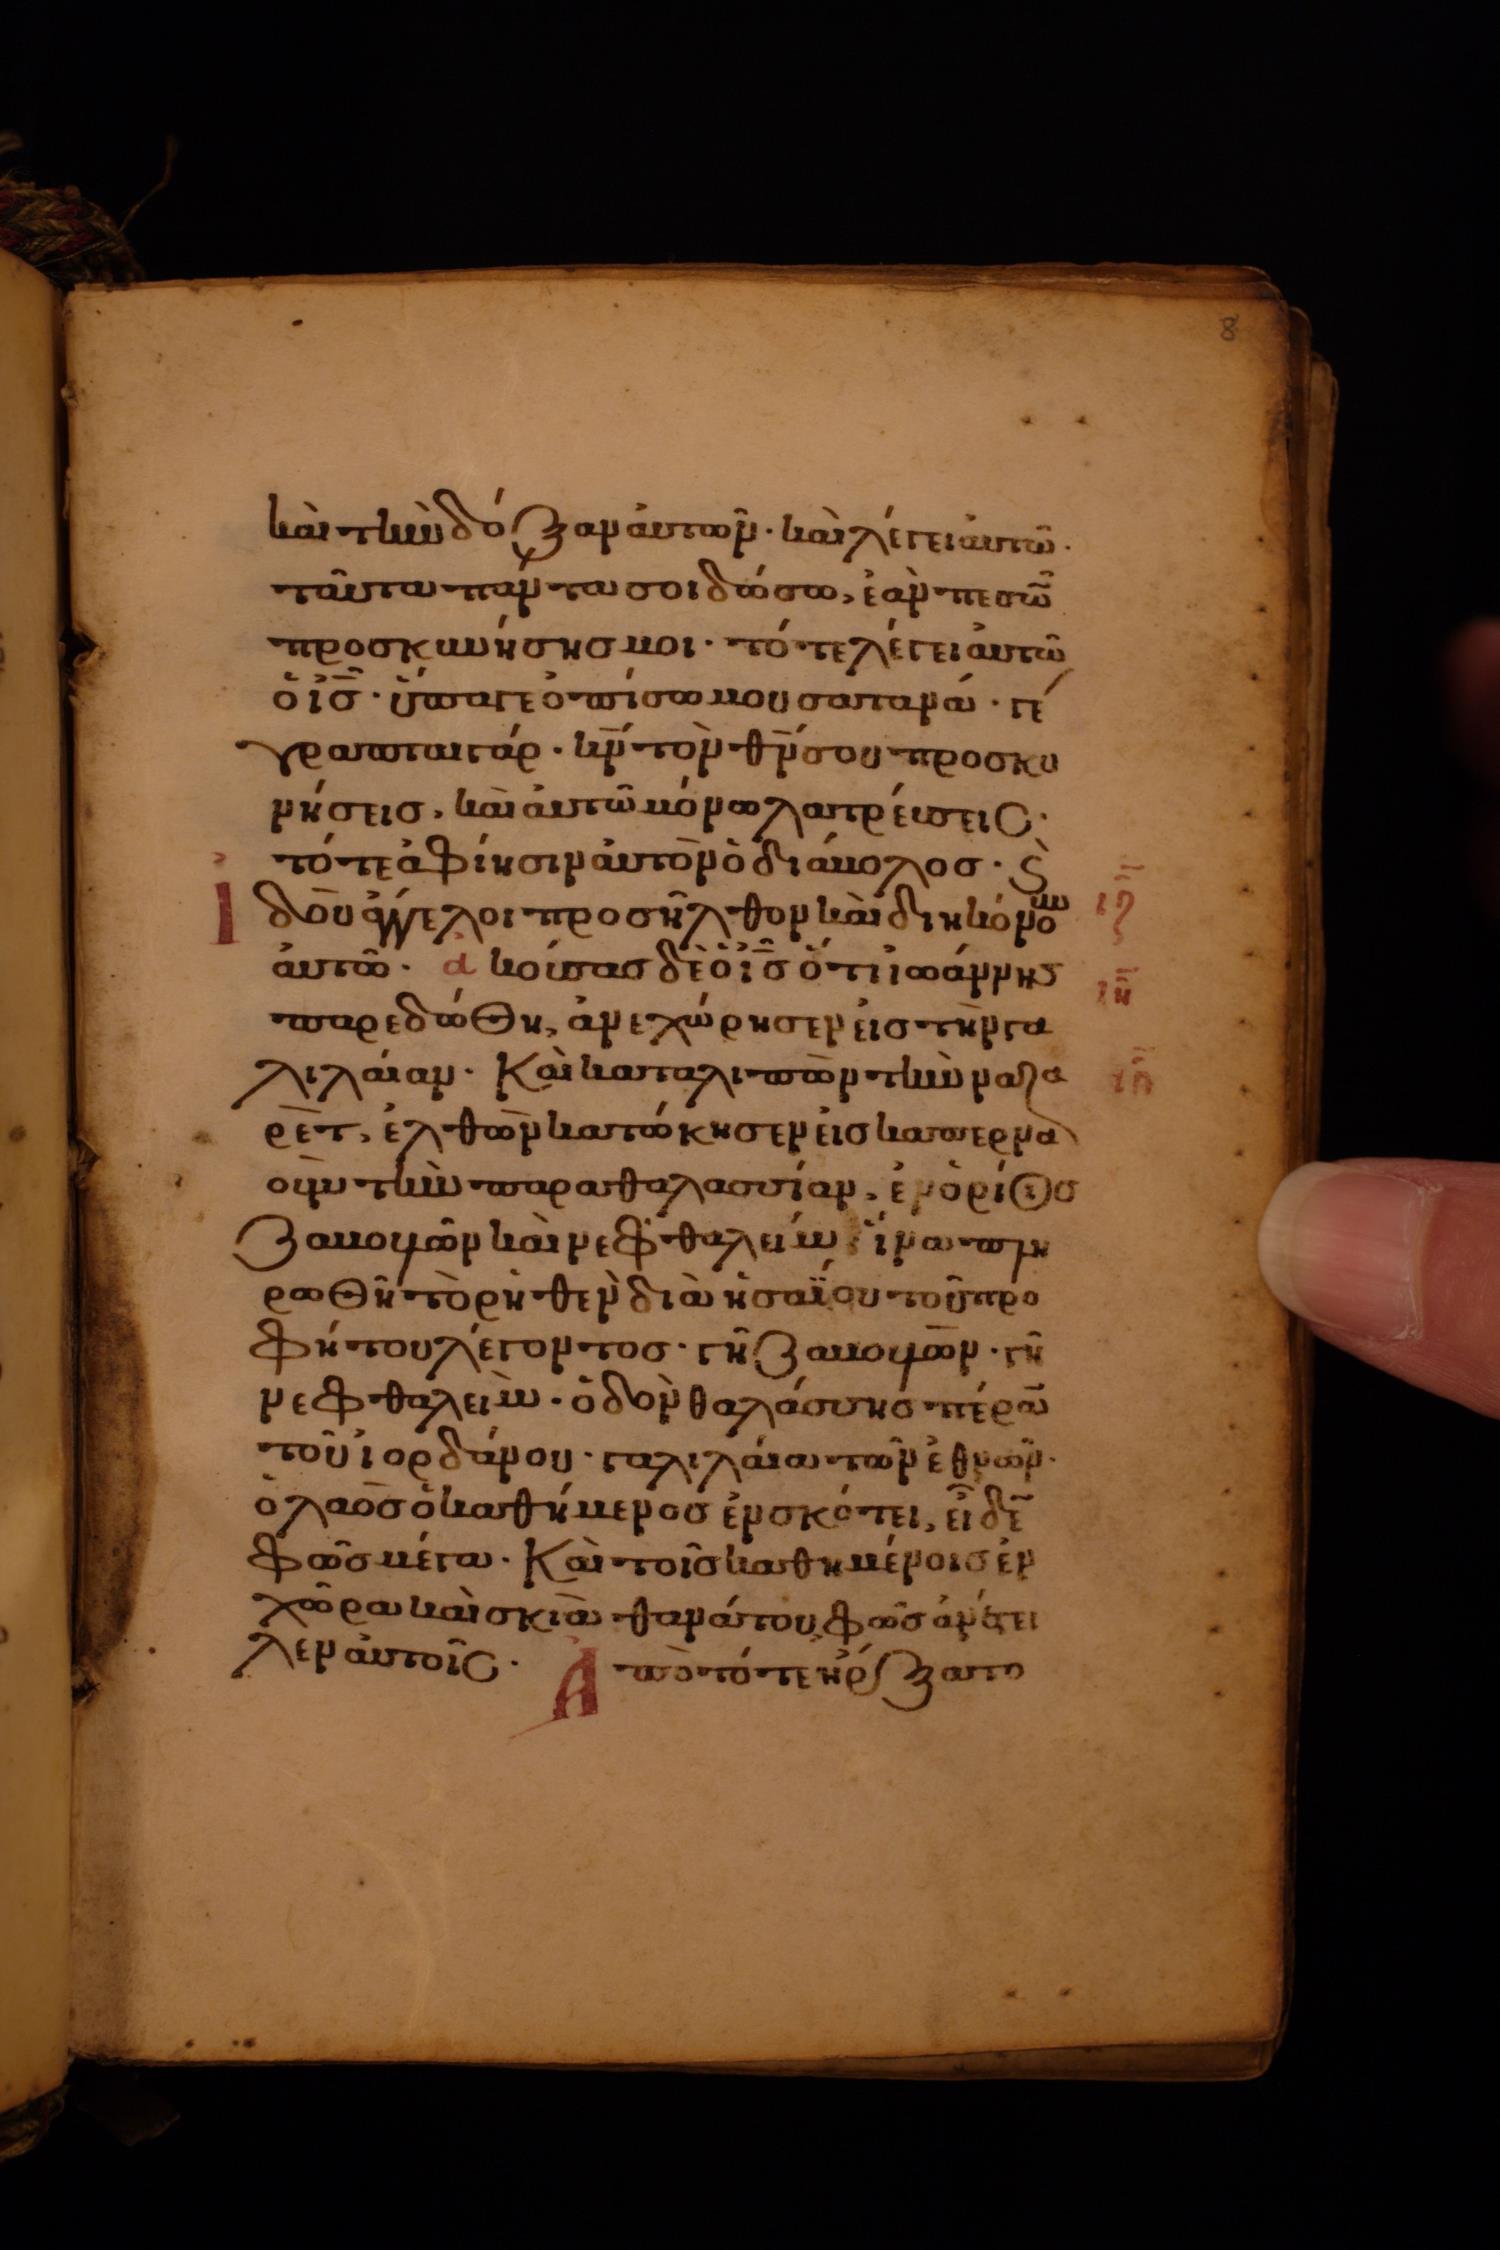 8
καὶ τὴν δόξαν ἀυτῶν · καὶ λέγει ἀυτῶ ·
ταῦτα πάντα σοι δώσω, ἐὰν πεσῶ̓
προσκυνήσησ μοι · τότε λέγει ἀυτῶ
ὁ ἰσ̅ · ὕπαγε ὀπίσω μου σατανά · γέ
γραπται γάρ · κν̅ τὸν θν̅ σου προσκυ
νήσεισ, καὶ ἀυτῶ μόνω λατρέυσεις ·
τότε ἀφίησιν ἀυτὸν ὁ διάβολοσ · ϗ̀
ἰδοὺ ἄγγελοι προσῆλθον καὶ διηκόνουν
ἀυτῶ · ἀκούσασ δὲ ὁ ἰσ̅ ὅτι ἰωάννησ
ιζ
ιη
παρεδόθη, ἀνεχώρησεν ἐισ τὴν γα
λιλάιαν · Καὶ καταλιπὼν τὴν ναζα
ιθ
ρὲτ, ἐλθὼν κατώκησεν ἐισ καπερνα
οὺμ τὴν παραθαλασσίαν, ἐν ὁρίοισ
Ζαβουλὼν καὶ νεφθαλείμ ἵνα πλη
ρωθῆ τὸ ρηθὲν διὰ ἠσαΐου τοῦ προ
φήτου λέγοντοσ · γῆ Ζαβουλὼν · γῆ
νεφθαλεὶμ · ὁδὸν θαλάσσησ πέραν
τοῦ ἰορδάνου · γαλιλάια τῶν ἐθνῶν ·
ὁ λαὸσ ὁ καθήμενοσ ἐν σκότει, εἶδε̅
φῶσ μέγα · Καὶ τοῖσ καθημένοισ ἐν
χῶρα καὶ σκιᾶ θανάτου, φῶσ ἀνέτει
λεν ἀυτοῖς · Ἀπὸ τότε ἤρξατο